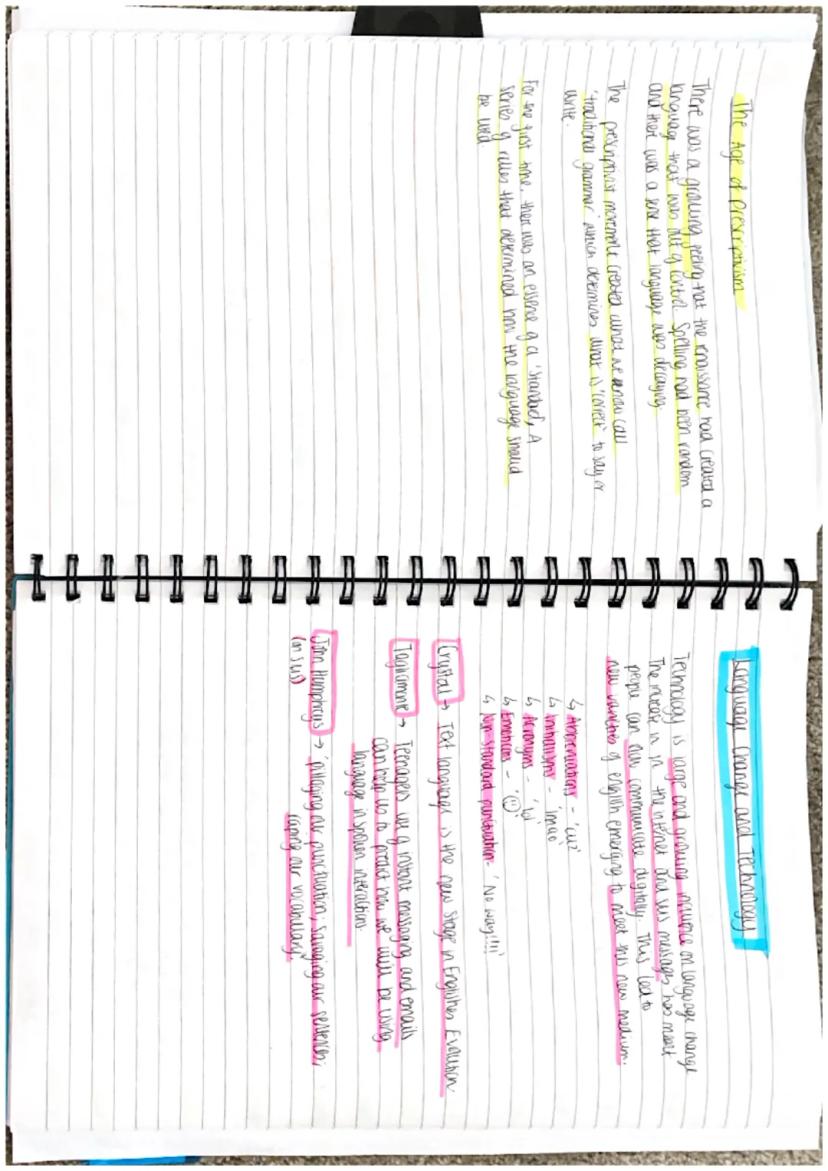 The Age of Prescriptivism
There was a growing feeling that the renaissance had created a
language that was out of control. Spelling had been random
and there was a sense that language was decaying.
The prescriptivist movement created what we know call
'traditional grammar' which determines what is 'correct' to say or
write.
For the first time, there was an essence of a 'standard', A
series of rules that determined how the language should
be used
Language Change and Technology
Technology is large and growing influence on language change
The increase in the internet and sms messages has meant
people can now communicate digitally. This led to
new varieties of english emerging to meet this new medium.
↳ Abbreviations - 'cuz'
↳ Initialisms - 'lmao'
↳ Acronyms - 'lol'
↳ Emoticons - '☺'
↳ Non-standard punctuation - 'No way!!!!'
Crystal → Text language is the new stage in Englishes Evolution.
Tagliamonte → Teenagers use of instant messaging and emails
can help us to predict how we will be using
language in spoken interactions.
John Humphrys → 'pillaging our punctuation; savaging our sentences;
(on SMS) raping our vocabulary'